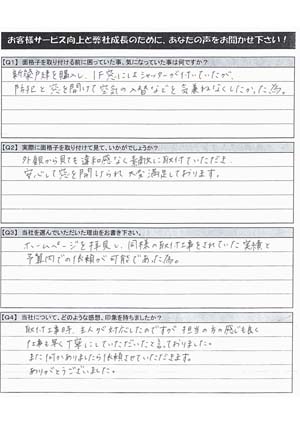 お客様サービス向上と弊社成長のために、あなたの声をお聞かせ下さい！
【Q1】 面格子を取り付ける前に困っていた事、気になっていた事は何ですか？
新築戸建を購入し、1F窓にはシャッターが付いていたが、
防犯と窓を開けて空気の入替などを気兼ねなくしたかった為。
【Q2】 実際に面格子を取り付けて見て、いかがでしょうか？
外観から見ても違和感なく素敵に取付ていただき
安心して窓を開けられ大変満足しております。
【Q3】 当社を選んでいただいた理由をお書き下さい。
ホームページを拝見し、同様の取付工事をされていた実績と
予算内での依頼が可能であった為。
【Q4】 当社について、どのような感想、印象を持ちましたか？
取付工事時、主人が対応したのですが担当の方の感じも良く
仕事も早く丁寧にしていただいたと言っておりました。
また何かありましたら依頼させていただきます。
ありがとうございました。